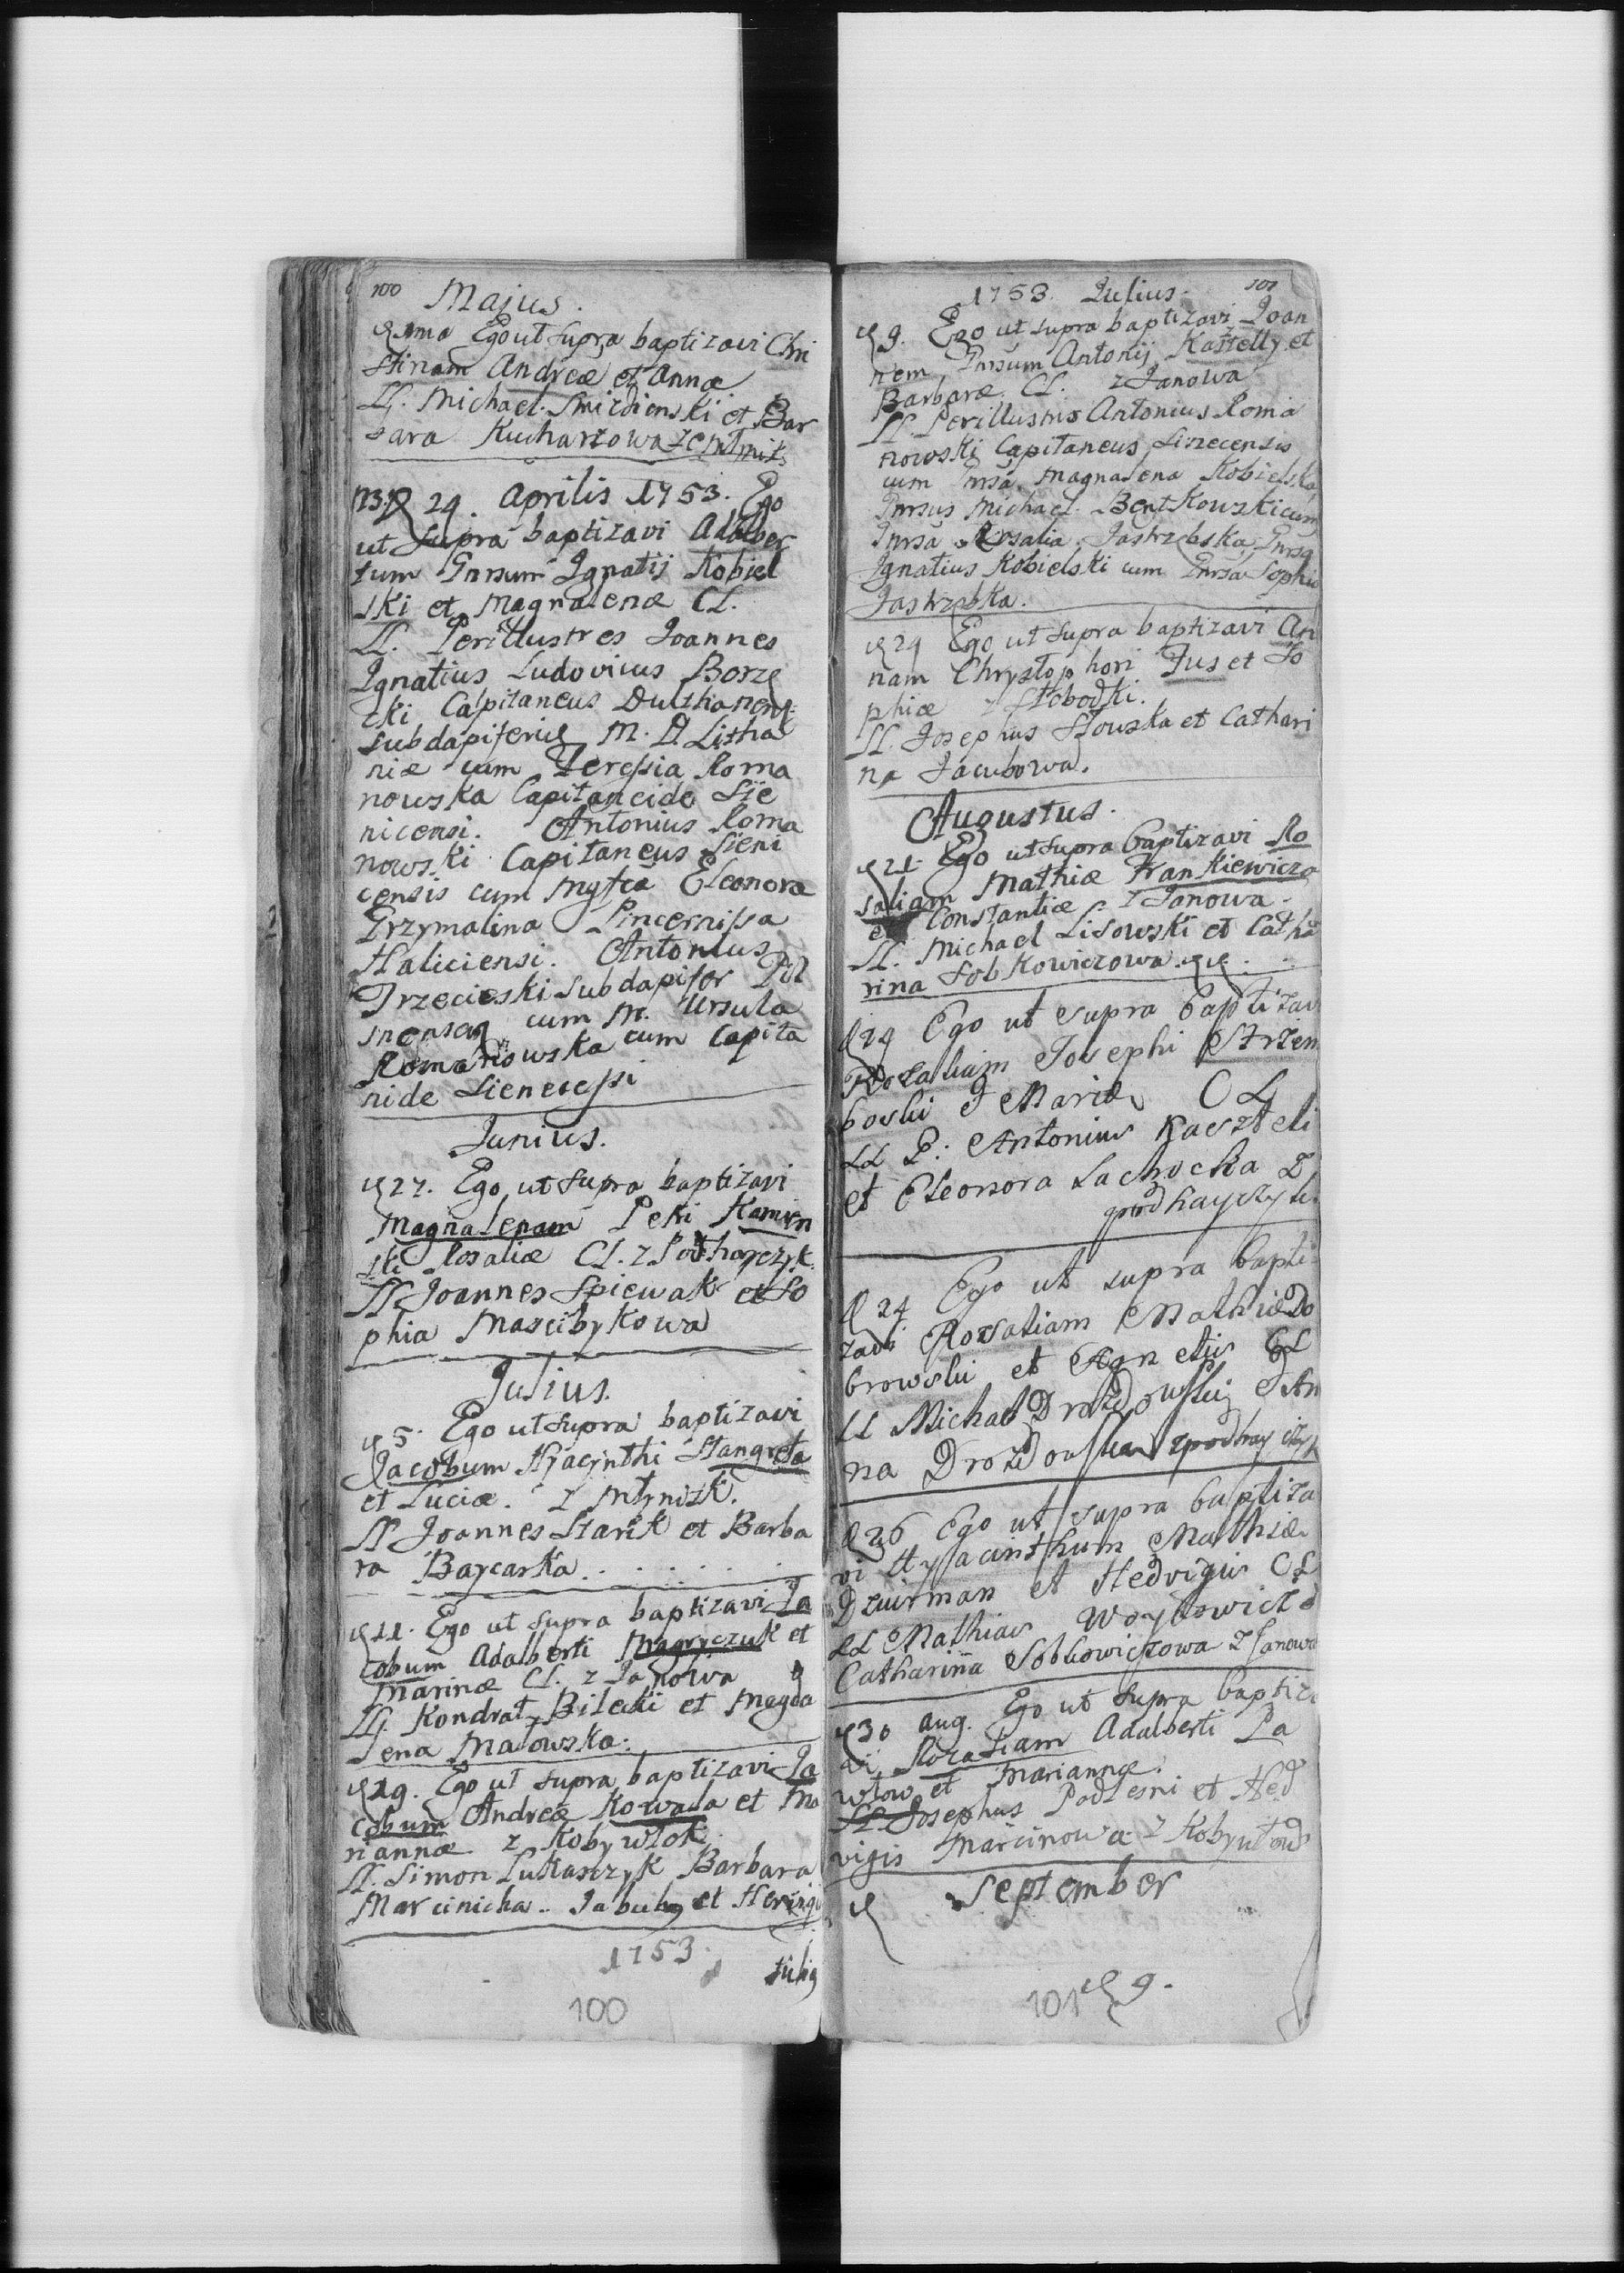 100 Majus.
1ma Ego ut supra baptizavi Chri
stinam Andreæ et Annæ
LL. Michael Smirdienski et Bar
bara Kucharzowa z
NB. 29. Aprilis 1753. Ego
ut supra baptizavi Adalber
tum Gnrsum Ignatij Kobiel
ski et Magnalenæ CL.
LL. Perillustres Joannes
Ignatius Ludovicus Borzę
cki Capitaneus
subdapiferus M. D. Litha
niæ cum Teressia Roma
nowska Capitaneide Sie
nicensi. Antonius Roma
nowski Capitaneus Sieni
censis cum Mgfca Eleonora
Grzymalina Pincernissa
Haliciensi. Antonius
Trzecieski Subdapifer Pil
cum M. Ursula
Romanowska cum Capita
nide
Junius.
27. Ego ut supra baptizavi
Magnalenam Petri Kamien
ski Rosaliæ CL. z Podhayczyk
LL Joannes Spiewak et So
phia Mascibykowa
Julius.
5. Ego ut supra baptizavi
Jacobum Hyacynthi Stangreta
et Luciæ. z Młynisk.
LL Joannes Starik et Barba
ra Baycarka. . . . . .
11. Ego ut supra baptizavi Ja
cobum Adalberti Magryczuk et
Marinæ CL. z Janowa
LL. Kondrat Bilecki et Magda
lena Małowska.
19. Ego ut supra baptizavi Ja
cobum Andreæ Kowala et Ma
riannæ z Kobywłok
LL. Simon Lukasczyk Barbara
Marcinicha. et
1753.
100
1753. Julius. 101
9. Ego ut supra baptizavi Joan
nem Gnrsum Antonij Kasztelly et
Barbaræ CL. z Janowa
LL. Perillustris Antonius Roma
nowski Capitaneus
cum Gnrsa Magnalena Kobielska
Gnrsus Michael Bentkowski cum
Gnrsa Rosalia Jastrzebska Gnrsq
Ignatius Kobielski cum Gnrsa Sophia
Jastrzebska.
29 Ego ut supra baptizavi An
nam Chrystophori Jus et So
phiæ z Słobodki.
LL. Josephus Słouska et Cathari
na Jacubowa.
Augustus.
21. Ego ut supra baptizavi Ro
saliam Mathiæ Frankiewicza
et Constantiæ z Janowa.
LL. Michael Lisowski et Catha
rina Sobkowiczowa
24 Ego ut supra baptizavi
Rozaliam Josephi Strzem
boski et Mariæ CL
LL P: Antonius Kaszteli
et Eleonora Lachocka z
podhayczyk
24 Ego ut supra bapti
zavi Rozaliam Mathiæ Do
browski et Agnetis CL
LL Michael Drozdowski et An
na Drozdowska z podhayczyk
26 Ego ut supra baptiza
vi Hyacinthum Mathiæ
Dzuirman et Hedvigis CL
LL Mathias Woytowicz et
Catharina Sobkowiczowa z Janowa
30 Aug. Ego ut supra baptiza
vi Rozaliam Adalberti Pa
włow et Mariannæ.
LL. Josephus Podlesni et Hed
vigis Marcinowa z Kobyłwłok
September
101 9.